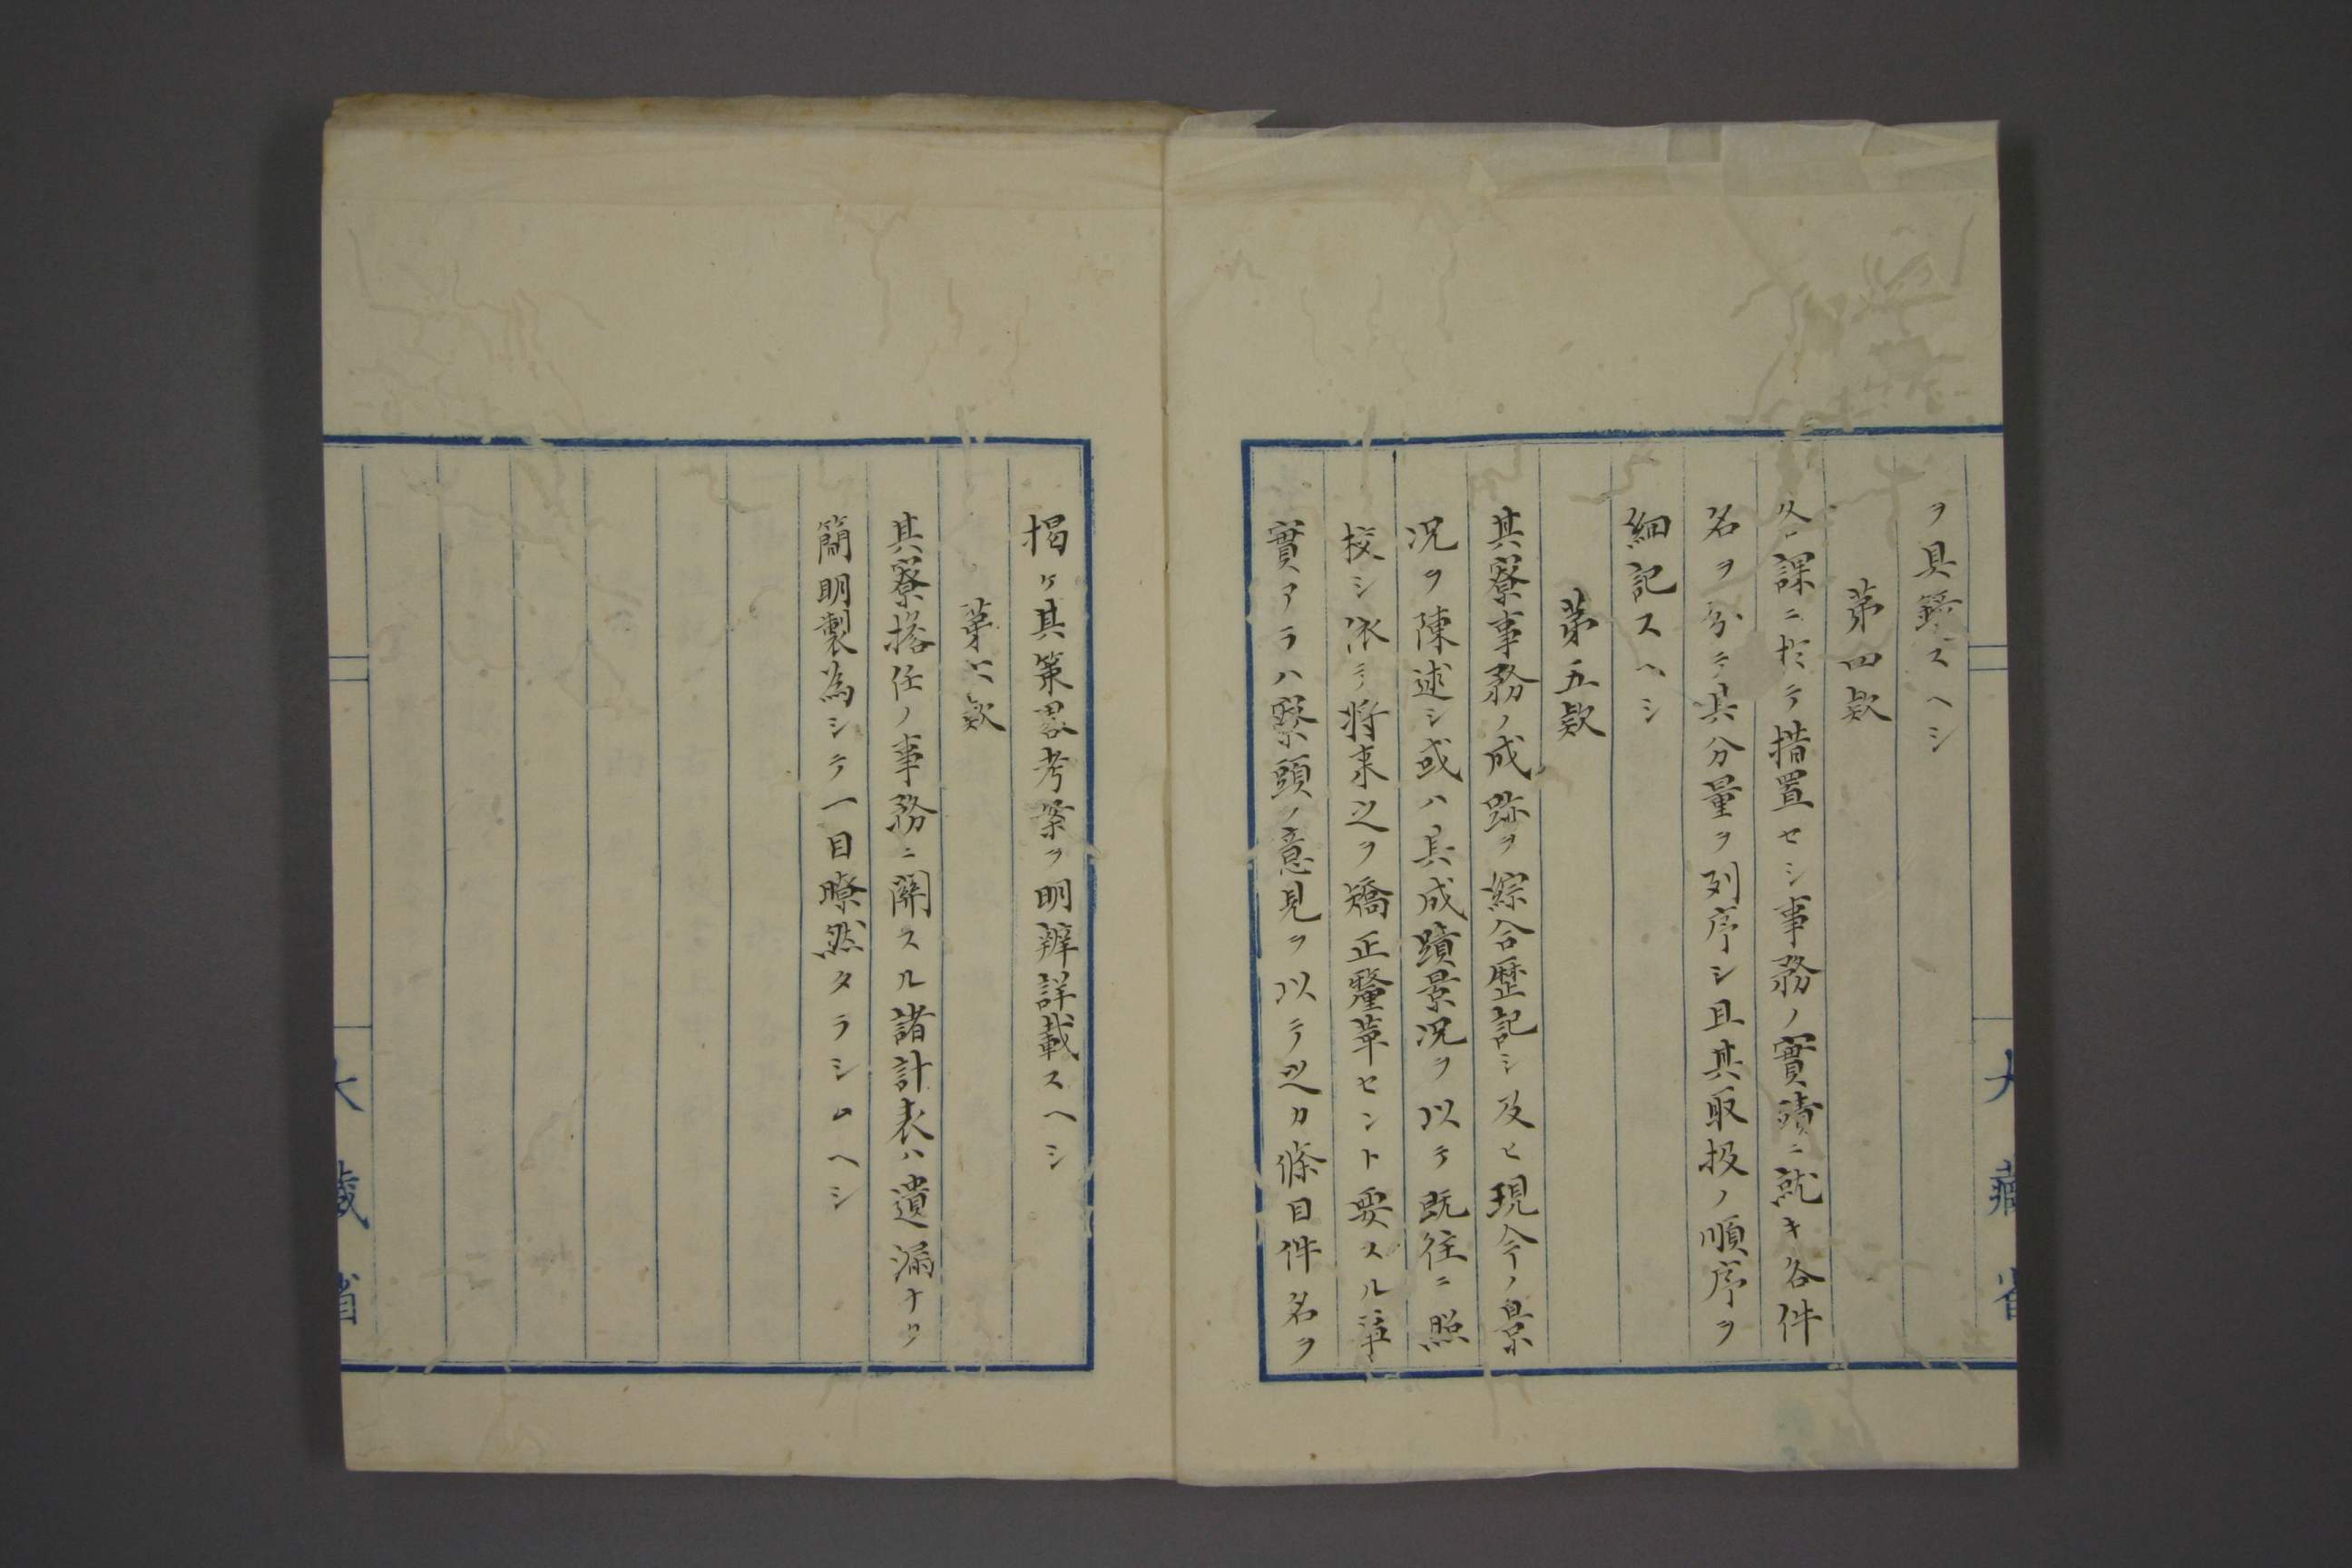 ヲ具錄スヘシ
第四款
各課ニ於テ措置セシ事務ノ實蹟ニ就キ各件
名ヲ分テ其分量ヲ列序シ且其取扱ノ順序ヲ
細記スヘシ
第五款
其寮事務ノ成跡ヲ綜合歷記シ及ヒ現今ノ景
況ヲ陳述シ或ハ其成蹟景況ヲ以テ既往ニ照
校シ依テ將來之ヲ矯正釐革セント要スル事
實アラハ寮頭ノ意見ヲ以テ之カ條目件名ヲ
揭ケ其策畧考案ヲ明辨詳載スヘシ
第六款
其寮擔任ノ事務ニ關スル諸計表ハ遺漏ナク
簡明製為シテ一目瞭然タラシムヘシ
大藏省
大藏省